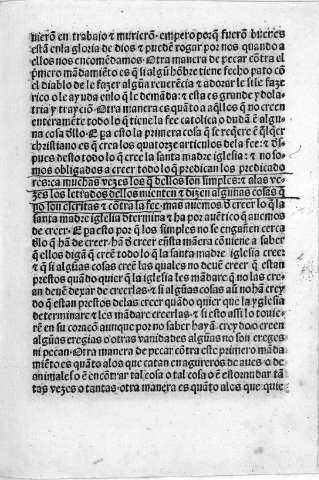 uierõ en trabajo ⁊ murierõ. empero porq̃ fuerõ buenos
estã enla gloria de dios ⁊ puedẽ rogar por nos quando a
ellos nos encomẽdamos. Otra manera de pecar cõtra el
p̃mero mãdamiẽto es q̃ si algũ hõbre tiene fecho pato cõ
el diablo de le fazer algũa reuerẽcia ⁊ adorar le si le faze
rico o le ayuda enlo q̃ le demãda: ⁊ esta es grande ydola-
tria y trayciõ. Otra manera es quãto a aq̃llos q̃ no creen
enteramẽte todo lo q̃ tiene la fee catolica o dudã ẽ algu-
na cosa d̃llo. E pa esto la primera cosa q̃ se req̃ere ẽ q̃lq̃er
christiano es q̃ crea los quatorze articulos dela fee: ⁊ d̃s-
pues desto todo lo q̃ cree la santa madre iglesia: ⁊ no so-
mos obligados a creer todo lo q̃ predican los predicado
res: ca muchas vezes los q̃ dellos son simples: ⁊ alas ve-
zes los letrados dellos mienten ⁊ dizen algunas cosas q̃
no son escritas ⁊ cõtra la fee. mas auemos d̃ creer lo q̃ la
santa madre iglesia d̃termina ⁊ ha por autẽtico q̃ auemos
de creer. E pa esto por q̃ los simples no se engañen cerca
d̃lo q̃ hã de creer. hã d̃ creer en̄sta maera cõuiene a saber
q̃ ellos digã q̃ creẽ todo lo q̃ la santa madre iglesia creer
⁊ q̃ si algũas cosas creẽ las quales no deuẽ creer q̃ estan
prestos quãdo quier q̃ la iglesia les mãdare q̃ no las cre-
an deuẽ dexar de creerlas. ⁊ si algũas cosas aũ no hã crey
do q̃ estan prestos delas creer quãdo quier que la yglesia
determinare ⁊ les mãdare creerlas. ⁊ si esto assi lo touie-
rẽ en su coraçõ aunque por no saber hayã creydo o creen
algũas eregias o otras vanidades algũas no son ereges
ni pecan. Otra manera de pecar cõtra este primero mãda
miẽto es quãto alos que catan en agueros de aues o de
animales o ẽ encõtrar tal cosa o tal cosa o ẽ estornudar tã
tas vezes o tantas. otra manera es quãto alos que quie